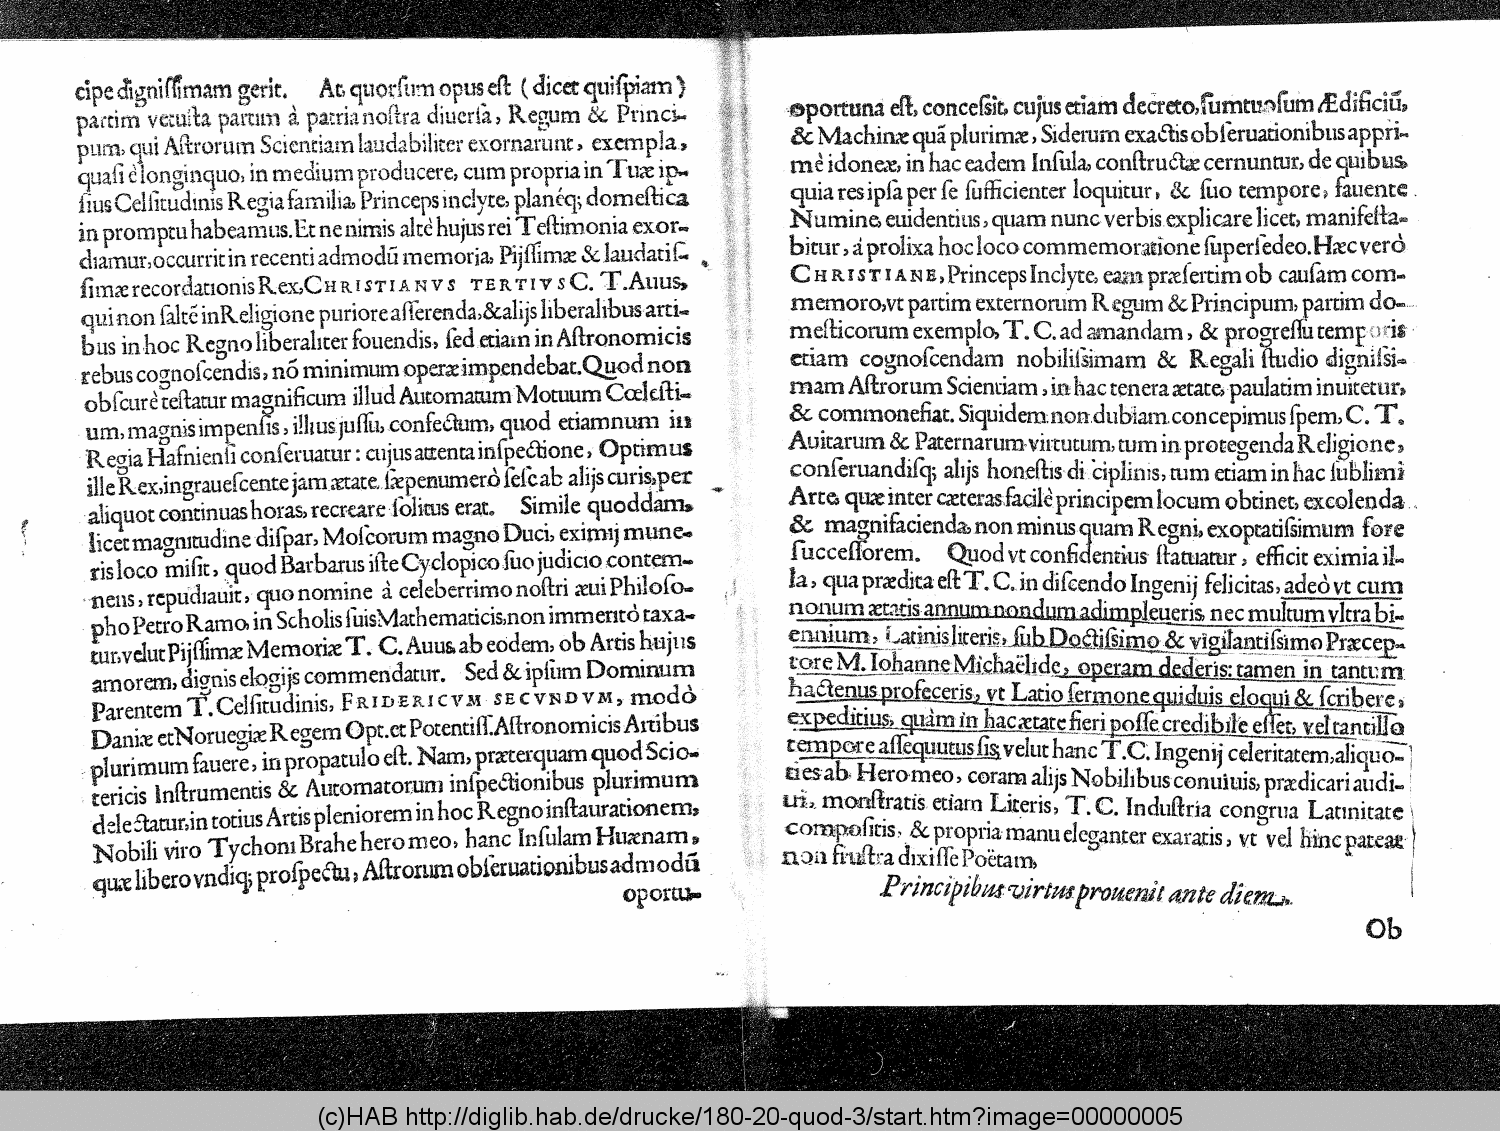 cipe digniſſimam gerit. At quorſum opus eſt ( dicet quiſpiam )
partim vetuſta partim à patria noſtra diuerſa, Regum & Princi-
pum, qui Aſtrorum Scientiam laudabiliter exornarunt, exempla,
quaſi è longinquo, in medium producere, cum propria in Tuæ ip-
ſius Celſitudinis Regia familia, Princeps inclyte, planéq; domeſtica
in promptu habeamus. Et ne nimis altè hujus rei Teſtimonia exor-
diamur, occurrit in recenti admodū memoria, Pijſſimæ & laudatiſ-
ſimæ recordationis Rex, CHRISTIANVS TERTIVS C. T. Auus,
qui non ſaltē in Religione puriore aſſerenda, & alijs liberalibus arti-
bus in hoc Regno liberaliter fouendis, ſed etiam in Aſtronomicis
rebus cognoſcendis, nō minimum operæ impendebat. Quod non
obſcurè teſtatur magnificum illud Automatum Motuum Cœleſti-
um, magnis impenſis, illius juſſu, confectum, quod etiamnum in
Regia Hafnienſi conſeruatur: cujus attenta inſpectione, Optimus
ille Rex, ingraueſcente jam ætate ſæpenumerò ſeſe ab alijs curis, per
aliquot continuas horas, recreare ſolitus erat. Simile quoddam,
licet magnitudine diſpar, Moſcorum magno Duci, eximij mune-
ris loco miſit, quod Barbarus iſte Cyclopico ſuo judicio contem-
nens, repudiauit, quo nomine à celeberrimo noſtri æui Philoſo-
pho Petro Ramo, in Scholis ſuis Mathematicis, non immeritò taxa-
tur, velut Pijſſimæ Memoriæ T. C. Auus ab eodem, ob Artis hujus
amorem, dignis elogijs commendatur. Sed & ipſum Dominum
Parentem T. Celſitudinis, FRIDERICVM SECVNDVM, modò
Daniæ et Noruegiæ Regem Opt. et Potentiſſ. Aſtronomicis Artibus
plurimum fauere, in propatulo eſt. Nam, præterquam quod Scio-
tericis Inſtrumentis & Automatorum inſpectionibus plurimum
delectatur, in totius Artis pleniorem in hoc Regno inſtaurationem,
Nobili viro Tychoni Brahe hero meo, hanc Inſulam Huænam,
quæ libero vndiq; proſpectu, Aſtrorum obſeruationibus admodū
oportu-
oportuna eſt, conceſsit, cujus etiam decreto, ſumtuoſum Ædificiū,
& Machinæ quā plurimæ, Siderum exactis obſeruationibus appri-
mè idoneæ, in hac eadem Inſula, conſtructæ cernuntur, de quibus,
quia res ipſa per ſe ſufficienter loquitur, & ſuo tempore, fauente
Numine, euidentius, quam nunc verbis explicare licet, manifeſta-
bitur, á prolixa hoc loco commemoratione ſuperſedeo. Hæc verò
CHRISTIANE, Princeps Inclyte, eam præſertim ob cauſam com-
memoro, vt partim externorum Regum & Principum, partim do-
meſticorum exemplo, T. C. ad amandam, & progreſſu temporis
etiam cognoſcendam nobiliſsimam & Regali ſtudio digniſsi-
mam Aſtrorum Scientiam, in hac tenera ætate, paulatim inuitetur,
& commonefiat. Siquidem non dubiam concepimus ſpem, C. T.
Auitarum & Paternarum virtutum, tum in protegenda Religione,
conſeruandiſq; alijs honeſtis diſciplinis, tum etiam in hac ſublimi
Arte, quæ inter cæteras facilè principem locum obtinet, excolenda
& magnifacienda, non minus quam Regni, exoptatiſsimum fore
ſucceſſorem. Quod vt confidentius ſtatuatur, efficit eximia il-
la, qua prædita eſt T. C. in diſcendo Ingenij felicitas, adeò vt cum
nonum ætatis annum nondum adimpleueris, nec multum vltra bi-
ennium, Latinis literis, ſub Doctiſsimo & vigilantiſsimo Præcep-
tore M. Iohanne Michaëlide, operam dederis: tamen in tantum
hactenus profeceris, vt Latio ſermone quiduis eloqui & ſcribere,
expeditius, quàm in hac ætate fieri poſſe credibile eſſet, vel tantillo
tempore aſſequutus ſis, velut hanc T. C. Ingenij celeritatem, aliquo-
ties ab Hero meo, coram alijs Nobilibus conuiuis, prædicari audi-
ui, monſtratis etiam Literis, T. C. Induſtria congrua Latinitate
compoſitis, & propria manu eleganter exaratis, vt vel hinc pateat
non fruſtra dixiſſe Poëtam,
Principibus virtus prouenit ante diem.
Ob
(c)HAB http://diglib.hab.de/drucke/180-20-quod-3/start.htm?image=00000005